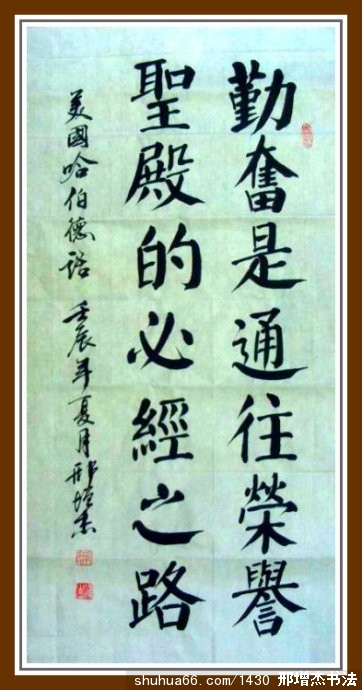 勤奮是通往榮譽
聖殿的必經之路
美國哈伯德語 壬辰年夏月邢增杰
shuhua66.com/1430 邢增杰书法